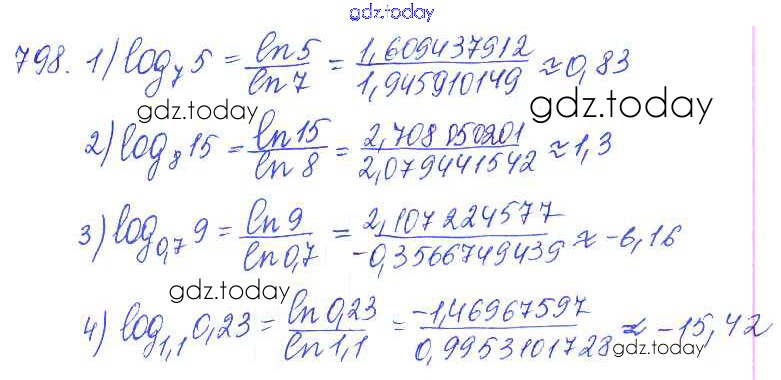 gdz.today
798. 1) log₇ 5 = ln 5 / ln 7 = 1,609437912 / 1,945910149 ≈ 0,83
gdz.today
gdz.today
2) log₈ 15 = ln 15 / ln 8 = 2,708050201 / 2,079441542 ≈ 1,3
3) log₀,₇ 9 = ln 9 / ln 0,7 = 2,107224577 / -0,3566749439 ≈ -6,16
gdz.today
4) log₁,₁ 0,23 = ln 0,23 / ln 1,1 = -1,46967597 / 0,9953101728 ≈ -15,42
gdz.today